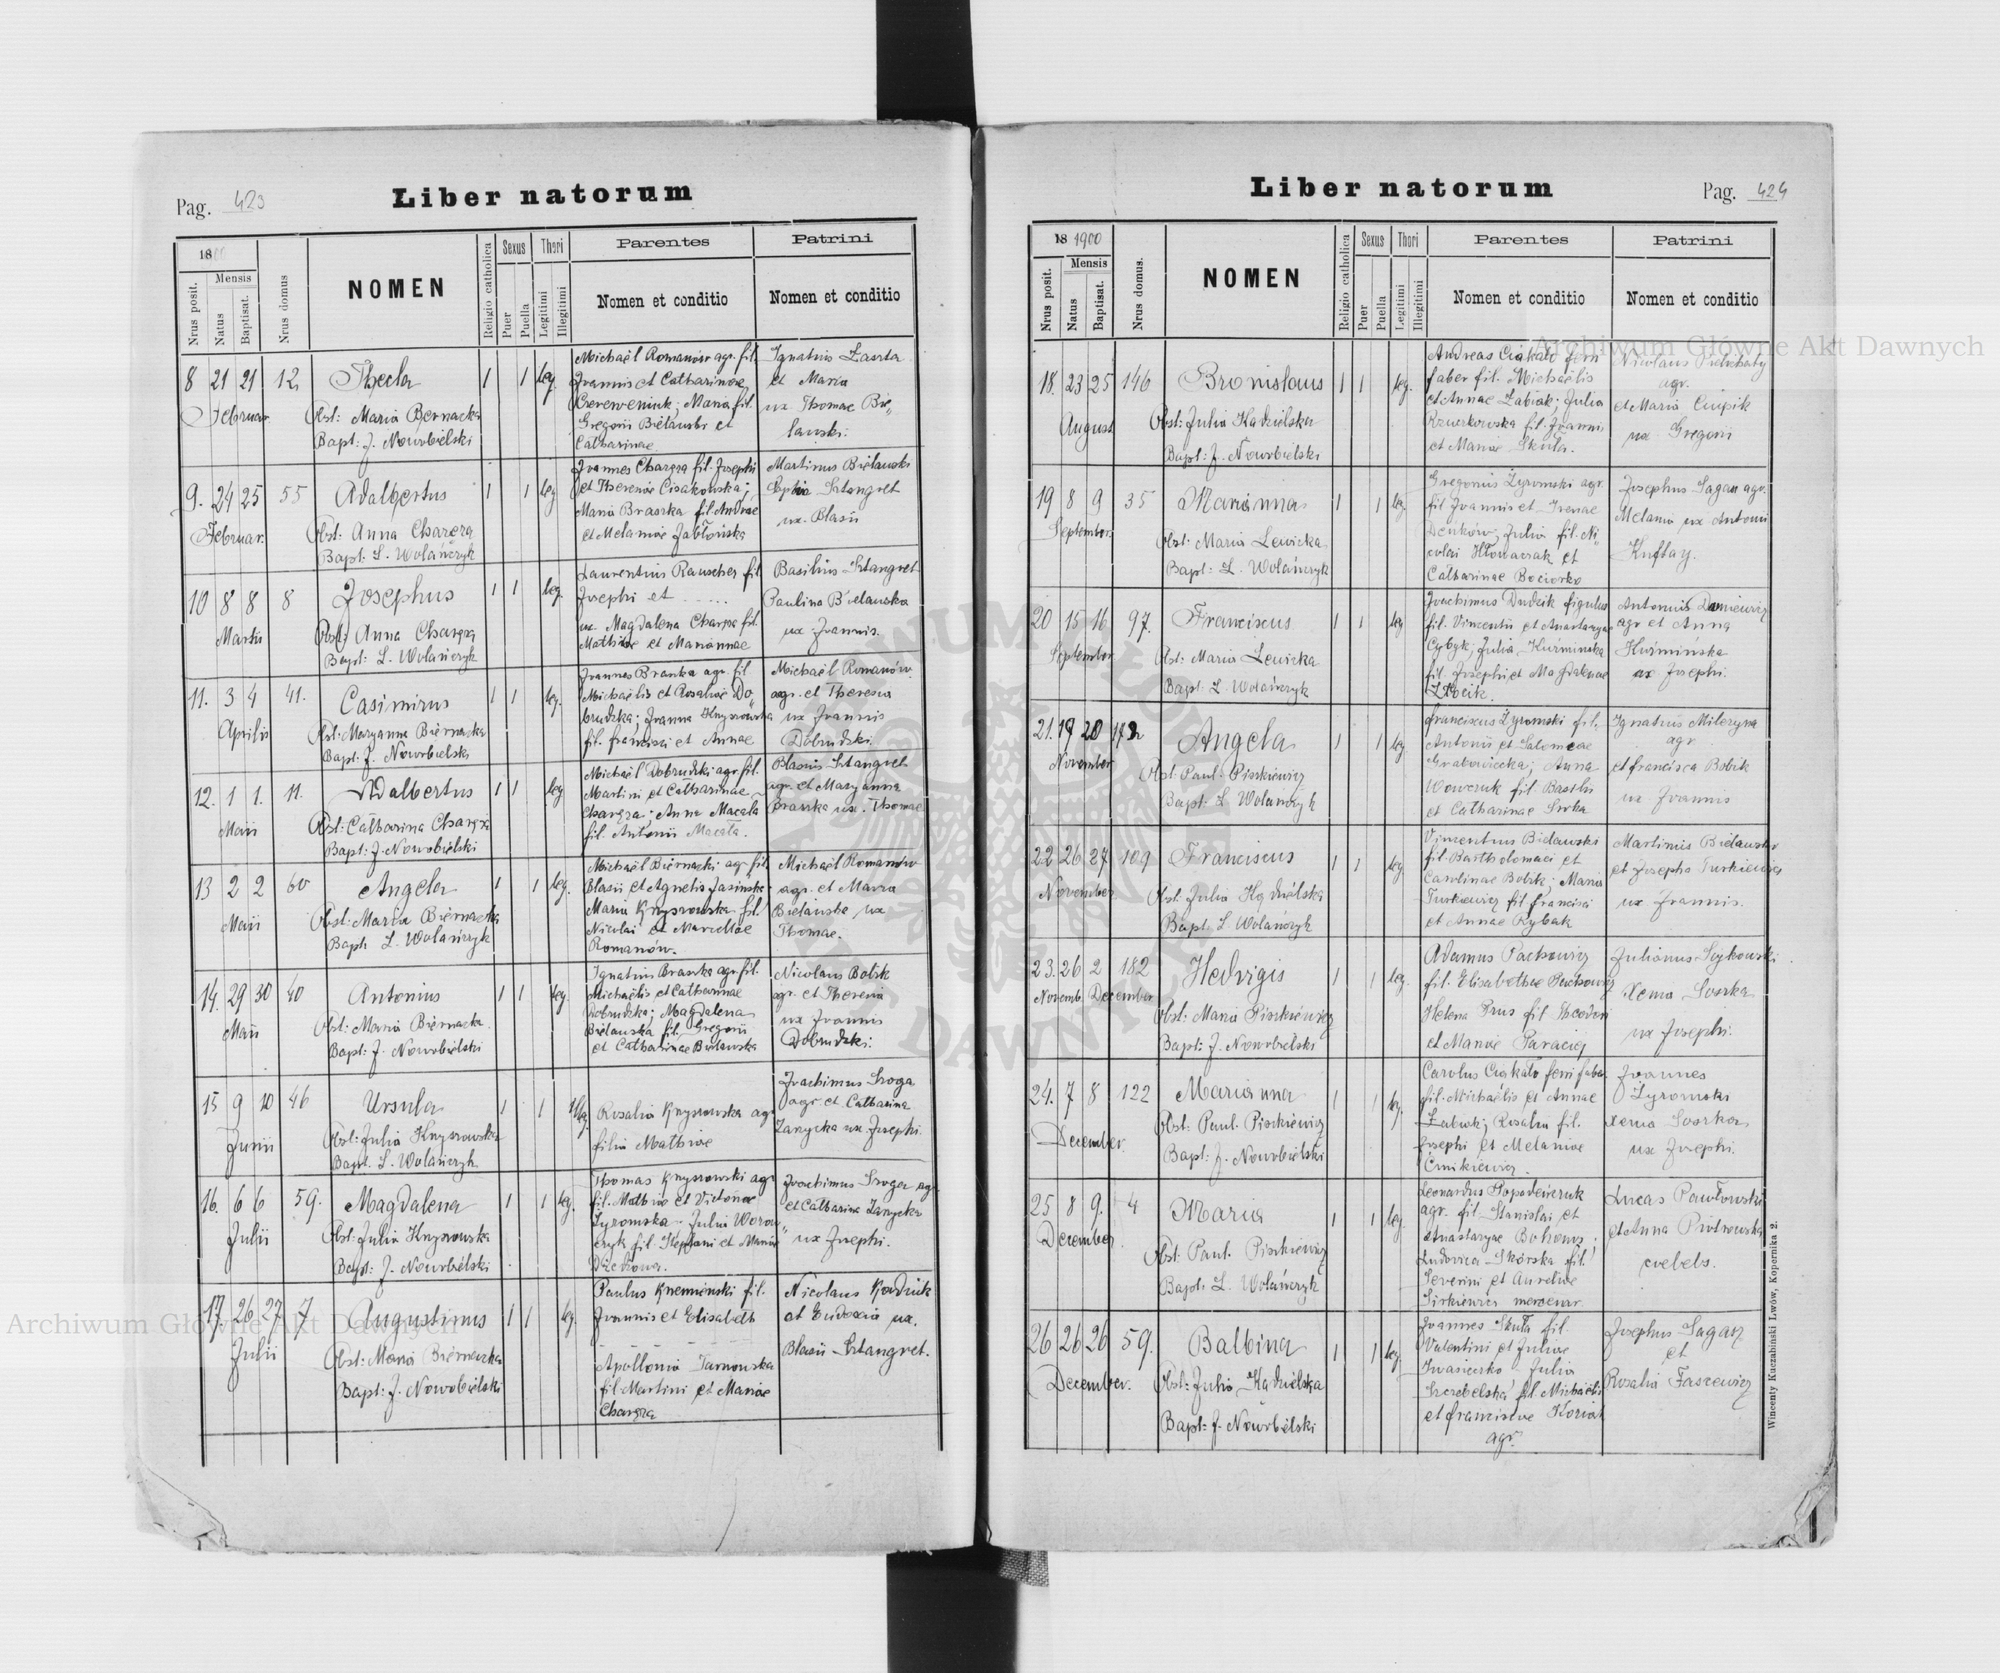 Pag. 423
Liber natorum
1800
Mensis
Nrus posit.
Natus
Baptisat.
Nrus domus
NOMEN
Religio catholica
Sexus
Puer
Puella
Thori
Legitimi
Illegitimi
Parentes
Nomen et conditio
Patrini
Nomen et conditio
8 21 21 12 Thecla 1 1 leg.
Februar.
Obst: Maria Bernacka
Bapt: J. Nowobielski
Michaël Romanów agr. fil.
Joannis et Catharinae
Czereweniuk; Maria fil.
Gregorii Bielawski et
Catharinae
Ignatius Zaszta
et Maria
ux Thomae Bie„
lawski.
9. 24 25 55 Adalbertus 1 1 leg
Februar.
Obst: Anna Charęza
Bapt: L. Wolańczyk
Joannes Charęza fil. Josephi
et Theresiae Cisakowska;
Maria Braszka fil. Andreae
et Melaniae Jabłońska
Martinus Bielawski
Sophia Sztangret
ux. Blasii
10 8 8 8 Josephus 1 1 leg.
Martii
Obst: Anna Charęza
Bapt: L. Wolańczyk
Laurentius Rauscher fil
Josephi et
ux. Magdalena Charęza fil.
Mathiae et Mariannae
Basilius Sztangret
Paulina Bielawska
ux Joannis.
11. 3 4 41. Casimirus 1 1 leg.
Aprilis
Obst: Maryanna Biernacka
Bapt: J. Nowobielski
Joannes Braszka agr. fil.
Michaëlis et Rosaliae Do„
brudzka; Joanna Knyszowska
fil. Francisci et Annae
Michaël Romanów
agr. et Theresia
ux Joannis
Dobrudzki.
12. 1 1. 11. Adalbertus 1 1 leg
Maii
Obst: Catharina Charęza
Bapt: J. Nowobielski
Michaël Dobrudzki agr. fil.
Martini et Catharinae
Charęza; Anna Macała
fil. Antonii Macała.
Blasius Sztangret
agr. et Maryanna
Braszka ux. Thomae
13 2 2 60 Angela 1 1 leg.
Maii
Obst: Maria Biernacka
Bapt: L. Wolańczyk
Michaël Biernacki agr. fil.
Blasii et Agnetis Jasińska
Maria Knyszowska fil.
Nicolai et Marcellae
Romanów.
Michaël Romanów
agr. et Maria
Bielawska ux
Thomae.
14. 29 30 40 Antonius 1 1 leg.
Maii
Obst: Maria Biernacka
Bapt: J. Nowobielski
Ignatius Braszka agr. fil.
Michaëlis et Catharinae
Dobrudzka; Magdalena
Bielawska fil. Gregorii
et Catharinae Bielawska
Nicolaus Bobik
agr. et Theresia
ux Joannis
Dobrudzki.
15 9 10 46 Ursula 1 1 illeg.
Junii
Obst: Julia Knyszowska
Bapt. L. Wolańczyk
Rosalia Knyszowska agr
filia Mathiae
Joachimus Sroga
agr. et Catharina
Zanycka ux. Josephi.
16. 6 6 59. Magdalena 1 1 leg.
Julii
Obst: Julia Knyszowska
Bapt: J. Nowobielski
Thomas Knyszowski agr
fil. Mathiae et Victoriae
Żyromska. Julia Worow„
czyk fil. Stephani et Mariae
Joachimus Sroga agr
et Catharina Zanycka
ux Josephi.
17. 26 27 7 Augustinus 1 1 leg.
Julii
Obst: Maria Biernacka
Bapt: J. Nowobielski
Paulus Kremienski fil.
Joannis et Elisabeth
Apollonia Tarnowska
fil Martini et Mariae
Charęza
Nicolaus Kordiuk
et Eudoxia ux.
Blasii Sztangret.
Pag. 424
Liber natorum
18 1900
Mensis
Nrus posit.
Natus
Baptisat.
Nrus domus.
NOMEN
Religio catholica
Sexus
Puer
Puella
Thori
Legitimi
Illegitimi
Parentes
Nomen et conditio
Patrini
Nomen et conditio
18. 23 25 146 Bronislaus 1 1 leg.
August
Obst: Julia Kądzielska
Bapt: J. Nowobielski
Andreas Ciakało ferri
faber fil. Michaëlis
et Annae Łabiak; Julia
fil. Joannis
et Mariae Skuła.
Nicolaus
agr.
et Maria Ciupik
ux Gregorii
19 8 9 35 Marianna 1 1 leg.
September.
Obst: Maria Lewicka
Bapt: L. Wolańczyk
Gregorius Żyromski agr.
fil Joannis et Irenae
Deńków; Julia fil. Ni„
colai Hłowaczak et
Catharinae Bociorko
Josephus Sagan agr.
Melania ux Antonii
Kuftay.
20 15 16 97. Franciscus 1 1 leg
September
Obst: Maria Lewicka
Bapt. L. Wolańczyk
Joachimus Dudzik figulus
fil. Vincentii et Anastasyae
Cybyk; Julia Kuźmińska
fil. Josephi et Magdalenae
Antonius Daniewicz
agr et Anna
Kuźmińska
ux Josephi.
21. 19 20 172 Angela 1 1 leg
November
Obst. Paul. Piszkiewicz
Bapt: L. Wolańczyk
Franciscus Żyromski fil.
Antonii et Salomeae
Grabowiecka; Anna
Wowczuk fil Basilii
et Catharinae Sirka
Ignatius Mileryna
agr
et Francisca Bobik
ux Joannis
22 26 27 109 Franciscus 1 1 leg
November
Obst. Julia Kądzielska
Bapt: L. Wolańczyk
Vincentius Bielawski
fil. Bartholomaei et
Carolinae Bobik; Maria
Turkiewicz fil Francisci
et Annae Rybak
Martinus Bielawski
et Josepha Turkiewicz
ux Joannis.
23. 26 2 182 Hedvigis 1 1 leg.
Novemb. December
Obst: Maria Piszkiewicz
Bapt: J. Nowobielski
Adamus Pachowicz
fil. Elisabethae Pachowicz
Helena Prus fil Theodori
et Mariae Paraciej
Julianus Szykowski.
Xenia Soszka
ux Josephi.
24. 7 8 122 Marianna 1 1 leg.
December.
Obst: Paul. Piszkiewicz
Bapt: J. Nowobielski
Carolus Ciakało ferri faber
fil. Michaëlis et Annae
Łabiak; Rosalia fil.
Josephi et Melaniae
Ćmikiewicz.
Joannes
Żyromski
Xenia Soszka
ux Josephi.
25 8 9. 4 Maria 1 1 leg.
December.
Obst: Paul. Piszkiewicz
Bapt: L. Wolańczyk
Leonardus Popadeńczuk
agr. fil. Stanislai et
Anastasyae Bohonys;
Ludovica Skórska fil.
Severini et Aureliae
Sirkiewicz mercenar
Lucas Pawłowski
et Anna Piotrowska
coelebs.
26 26 26 59. Balbina 1 1 leg.
December.
Obst: Julia Kądzielska
Bapt: J. Nowobielski
Joannes Skuła fil
Valentini et Juliae
Iwasieczko Julia
Szczebelska fil. Michaëlis
et Franciscae Koziak
agr.
Josephus Sagasz
et
Rosalia Faszewicz
Wincenty Kuczabiński Lwów, Kopernika 2.
Archiwum Główne Akt Dawnych
Archiwum Główne Akt Dawnych
ARCHIWUM GŁÓWNE AKT DAWNYCH